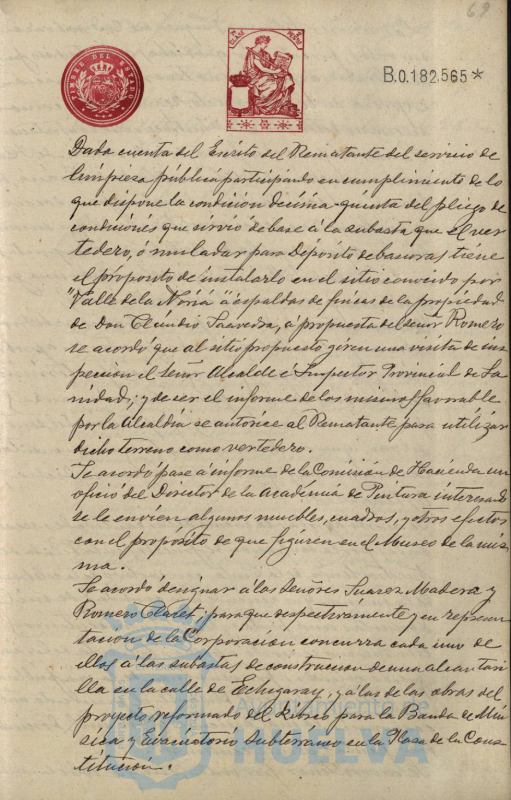 69
TIMBRE DEL ESTADO
B.0.182.565*
Dada cuenta del Escrito del Rematante del servicio de
limpieza pública participando en cumplimiento de lo
que dispone la condición décima-quinta del pliego de
condiciones que sirvió de base á la subasta que el ver-
tedero, ó muladar para Depósito de basuras, tiene
el própósito de instalarlo en el sitio conocido por
"Valle de la Noria" á espaldas de fincas de la propiedad
de Don Cláudio Saavedra, á propuesta del señor Romero
se acordó que al sitio propuesto giren una visita de ins-
pección el Señor Alcalde é Inspector Provincial de Sa-
nidad; y de ser el informe de los mismos favorable
por la Alcaldía se autorice al Rematante para utilizar
dicho terreno como vertedero.
Se acordó pase á informe de la Comisión de Hacienda un
oficio del Director de la Académia de Pintura interesando
se le envien algunos muebles, cuadros, y otros efectos
con el propósito de que figuren en el Museo de la mis-
ma.
Se acordó designar á los Señores Suarez Madera y
Romero Claret, para que respectivamente y en represen-
tación de la Corporación concurra cada uno de
ellos á las subastas de construcción de una alcantari-
lla en la calle de Echegaray, y á las de las obras del
proyecto reformado del Kiosco para la Banda de Mú-
sica y Evacuatorio Subterráneo en la Plaza de la Cons-
titución.
Ayuntamiento de
HUELVA